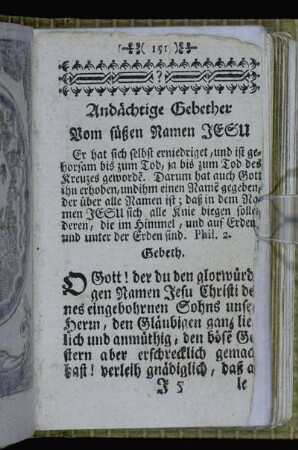 ( 151 )
Andächtige Gebether
Vom süßen Namen JESU
Er hat sich selbst erniedriget, und ist ge-
horsam bis zum Tod, ja bis zum Tod des
Kreuzes geword̃e. Darum hat auch Gott
ihn erhoben, und ihm einen Namẽ gegeben,
der über alle Namen ist; daß in dem Na-
men JESU sich alle Knie biegen solle
deren, die im Himmel, und auf Erden
und unter der Erden sind. Phil. 2.
Gebeth.
O Gott! der du den glorwürd
gen Namen Jesu Christi de
nes eingebohrnen Sohns unse
Herrn, den Gläubigen ganz lie
lich und anmüthig, den böse Ge
stern aber erschrecklich gemac
hast! verleih gnädiglich, daß a
J 5 le